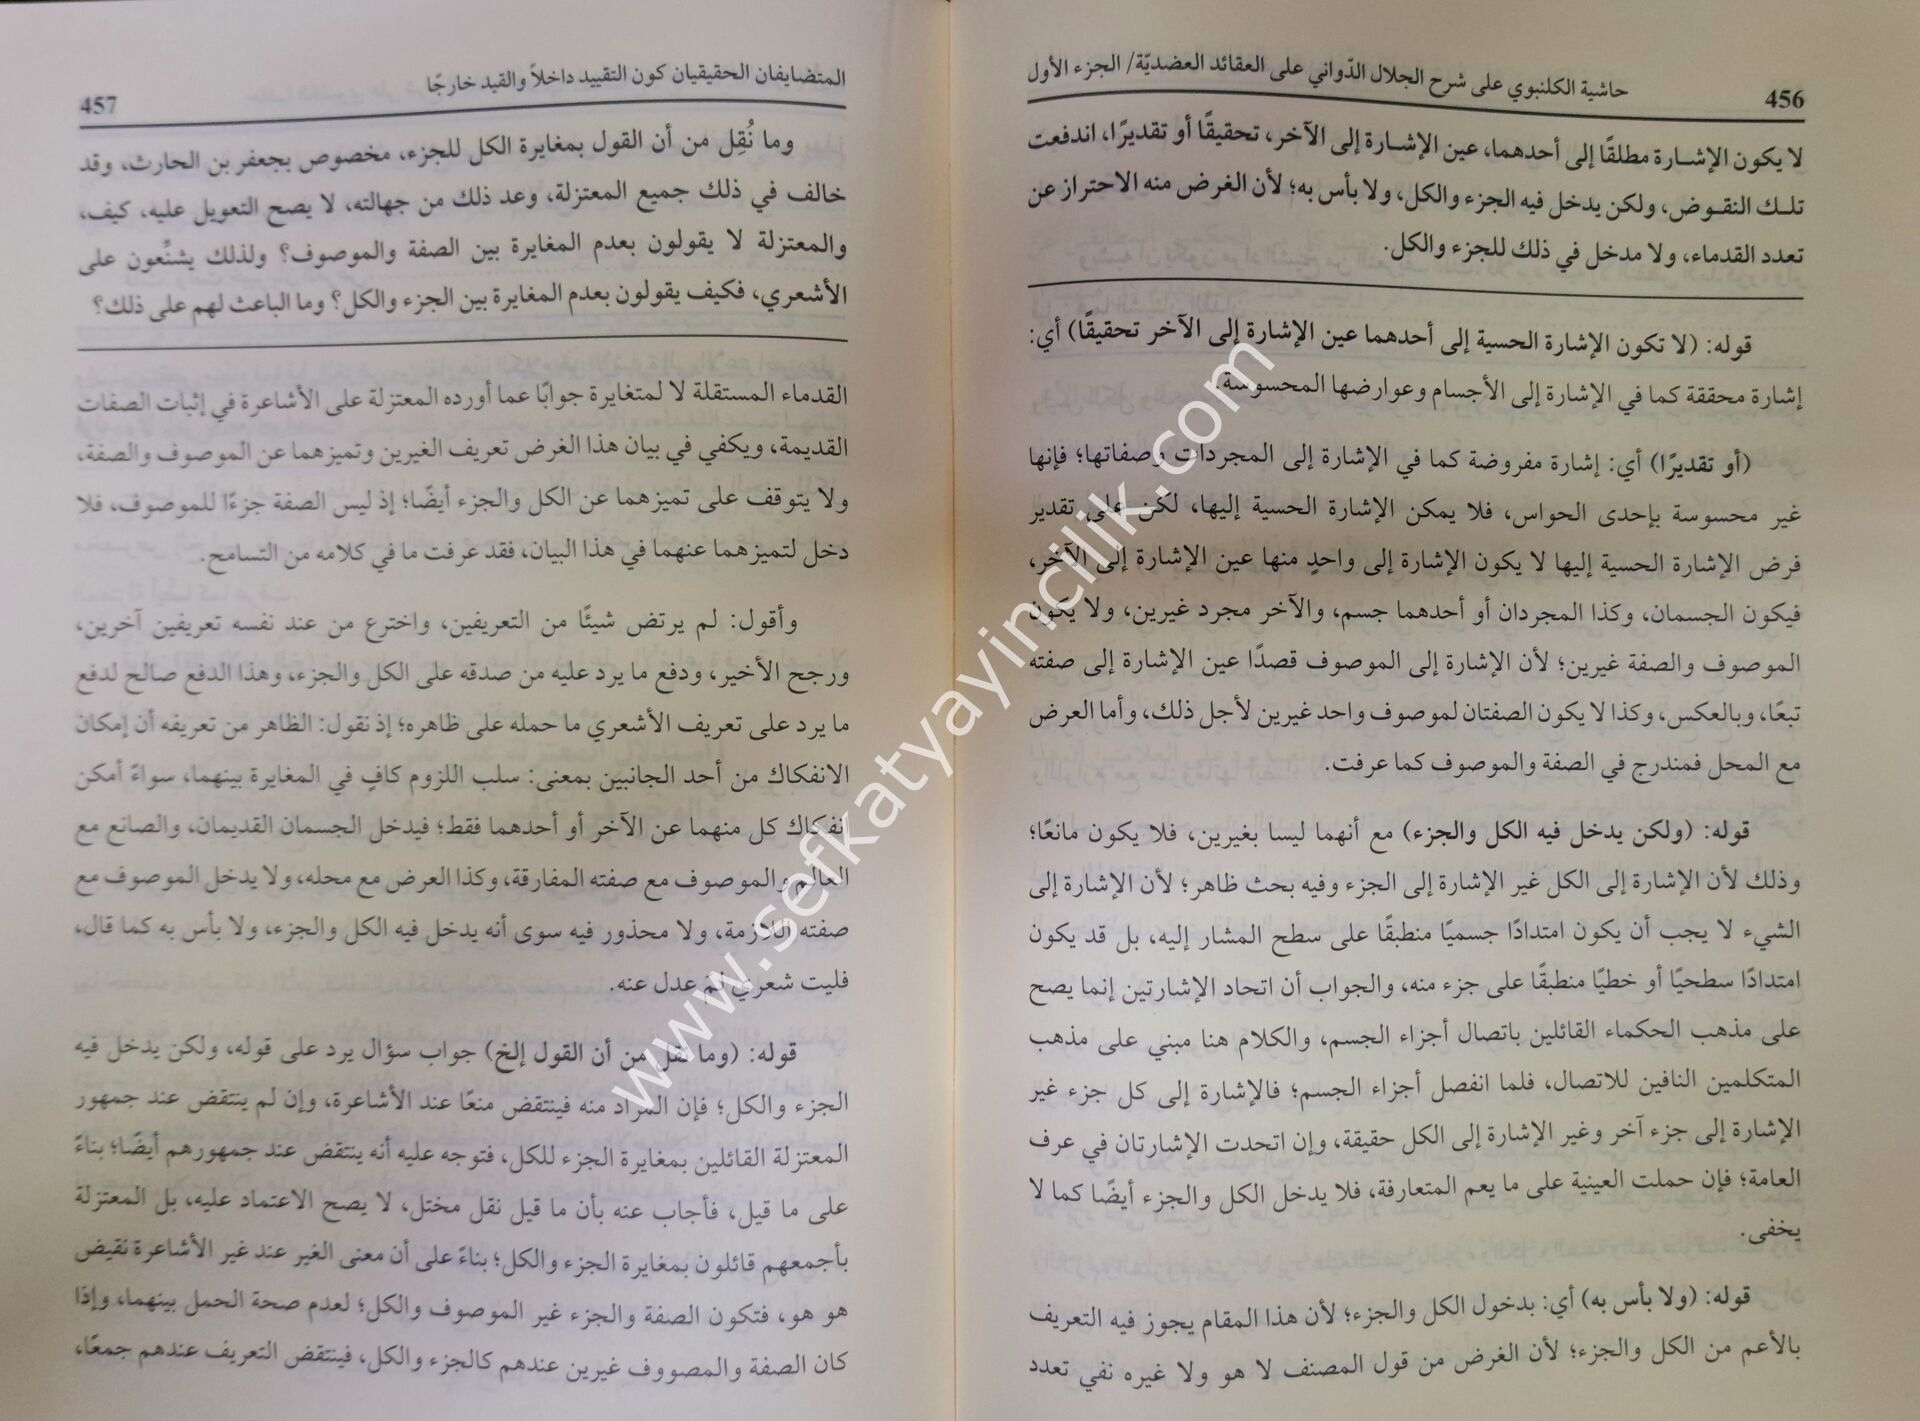 حاشية الكلنبوي على شرح الجلال الدّواني على العقائد العضديّة/ الجزء الأول
456
لا يكون الإشارة مطلقًا إلى أحدهما، عين الإشارة إلى الآخر، تحقيقًا أو تقديرًا، اندفعت
تلك النقوض، ولكن يدخل فيه الجزء والكل، ولا بأس به؛ لأن الغرض منه الاحتراز عن
تعدد القدماء، ولا مدخل في ذلك للجزء والكل.
قوله: (لا تكون الإشارة الحسية إلى أحدهما عين الإشارة إلى الآخر تحقيقًا) أي:
إشارة محققة كما في الإشارة إلى الأجسام وعوارضها المحسوسة.
(أو تقديرًا) أي: إشارة مفروضة كما في الإشارة إلى المجردات وصفاتها؛ فإنها
غير محسوسة بإحدى الحواس، فلا يمكن الإشارة الحسية إليها، لكن على تقدير
فرض الإشارة الحسية إليها لا يكون الإشارة إلى واحدٍ منها عين الإشارة إلى الآخر،
فيكون الجسمان، وكذا المجردان أو أحدهما جسم، والآخر مجرد غيرين، ولا يكون
الموصوف والصفة غيرين؛ لأن الإشارة إلى الموصوف قصدًا عين الإشارة إلى صفته
تبعًا، وبالعكس، وكذا لا يكون الصفتان لموصوف واحد غيرين لأجل ذلك، وأما العرض
مع المحل فمندرج في الصفة والموصوف كما عرفت.
قوله: (ولكن يدخل فيه الكل والجزء) مع أنهما ليسا بغيرين، فلا يكون مانعًا؛
وذلك لأن الإشارة إلى الكل غير الإشارة إلى الجزء وفيه بحث ظاهر؛ لأن الإشارة إلى
الشيء لا يجب أن يكون امتدادًا جسميًا منطبقًا على سطح المشار إليه، بل قد يكون
امتدادًا سطحيًا أو خطيًا منطبقًا على جزء منه، والجواب أن اتحاد الإشارتين إنما يصح
على مذهب الحكماء القائلين باتصال أجزاء الجسم، والكلام هنا مبني على مذهب
المتكلمين النافين للاتصال، فلما انفصل أجزاء الجسم؛ فالإشارة إلى كل جزء غير
الإشارة إلى جزء آخر وغير الإشارة إلى الكل حقيقة، وإن اتحدت الإشارتان في عرف
العامة؛ فإن حملت العينية على ما يعم المتعارفة، فلا يدخل الكل والجزء أيضًا كما لا
يخفى.
قوله: (ولا بأس به) أي: بدخول الكل والجزء؛ لأن هذا المقام يجوز فيه التعريف
بالأعم من الكل والجزء؛ لأن الغرض من قول المصنف لا هو ولا غيره نفي تعدد
المتضايفان الحقيقيان كون التقييد داخلاً والقيد خارجًا
457
وما نُقِل من أن القول بمغايرة الكل للجزء، مخصوص بجعفر بن الحارث، وقد
خالف في ذلك جميع المعتزلة، وعد ذلك من جهالته، لا يصح التعويل عليه، كيف،
والمعتزلة لا يقولون بعدم المغايرة بين الصفة والموصوف؟ ولذلك يشنِّعون على
الأشعري، فكيف يقولون بعدم المغايرة بين الجزء والكل؟ وما الباعث لهم على ذلك؟
القدماء المستقلة لا لمتغايرة جوابًا عما أورده المعتزلة على الأشاعرة في إثبات الصفات
القديمة، ويكفي في بيان هذا الغرض تعريف الغيرين وتميزهما عن الموصوف والصفة،
ولا يتوقف على تميزهما عن الكل والجزء أيضًا؛ إذ ليس الصفة جزءًا للموصوف، فلا
دخل لتميزهما عنهما في هذا البيان، فقد عرفت ما في كلامه من التسامح.
وأقول: لم يرتض شيئًا من التعريفين، واخترع من عند نفسه تعريفين آخرين،
ورجح الأخير، ودفع ما يرد عليه من صدقه على الكل والجزء، وهذا الدفع صالح لدفع
ما يرد على تعريف الأشعري ما حمله على ظاهره؛ إذ نقول: الظاهر من تعريفه أن إمكان
الانفكاك من أحد الجانبين بمعنى: سلب اللزوم كافٍ في المغايرة بينهما، سواءً أمكن
انفكاك كل منهما عن الآخر أو أحدهما فقط؛ فيدخل الجسمان القديمان، والصانع مع
العالم والموصوف مع صفته المفارقة، وكذا العرض مع محله، ولا يدخل الموصوف مع
صفته اللازمة، ولا محذور فيه سوى أنه يدخل فيه الكل والجزء، ولا بأس به كما قال،
فليت شعري لم عدل عنه.
قوله: (وما نقل من أن القول إلخ) جواب سؤال يرد على قوله، ولكن يدخل فيه
الجزء والكل؛ فإن المراد منه فينتقض منعًا عند الأشاعرة، وإن لم ينتقض عند جمهور
المعتزلة القائلين بمغايرة الجزء للكل، فتوجه عليه أنه ينتقض عند جمهورهم أيضًا؛ بناءً
على ما قيل، فأجاب عنه بأن ما قيل نقل مختل، لا يصح الاعتماد عليه، بل المعتزلة
بأجمعهم قائلون بمغايرة الجزء والكل؛ بناءً على أن معنى الغير عند غير الأشاعرة نقيض
هو هو، فتكون الصفة والجزء غير الموصوف والكل؛ لعدم صحة الحمل بينهما، وإذا
كان الصفة والمصووف غيرين عندهم كالجزء والكل، فينتقض التعريف عندهم جمعًا،
www.sefkatyayincilik.com